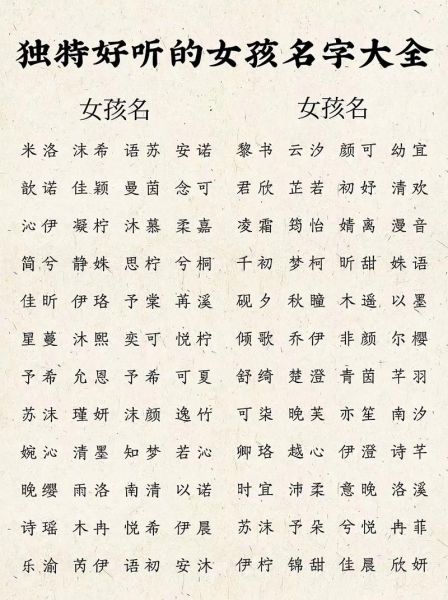 独特好听的女孩名字大全
女孩名 女孩名
米洛 沫希 语苏 安诺 黎书 云汐 颜可 幼宜
歆诺 佳颖 曼茵 念可 君欣 芷若 初妤 清欢
沁伊 凝柠 沐慕 柔嘉 凌霜 筠怡 婧离 漫音
简兮 静姝 思柠 兮桐 千初 梦柯 昕甜 姝语
佳昕 伊珞 予棠 苒溪 砚夕 秋瞳 木遥 以墨
星蔓 沐熙 奕可 悦柠 倾歌 乔伊 非颜 尔樱
予希 允恩 予希 可夏 舒绮 楚澄 青茵 芊羽
苏沫 瑾妍 沫颜 逸竹 可柒 晚芙 亦笙 南汐
婉沁 清墨 知梦 若沁 卿珞 越心 伊澄 诗芊
晚缨 雨洛 南清 以诺 时宜 沛柔 意晚 洛溪
诗瑶 木冉 悦希 伊晨 苏沫 予朵 兮悦 冉菲
乐渝 芮伊 语初 安沐 伊柠 锦甜 佳晨 欣妍